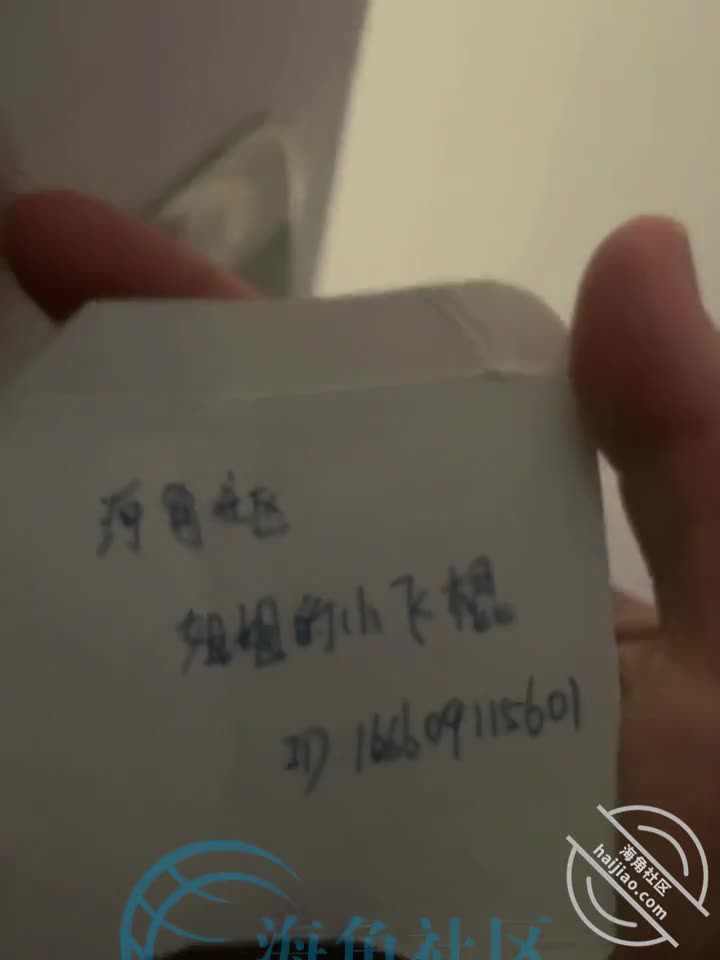 海角社区
姐姐的小飞棍
ID 166609115601
海角社区
haijiao.com
海角社区